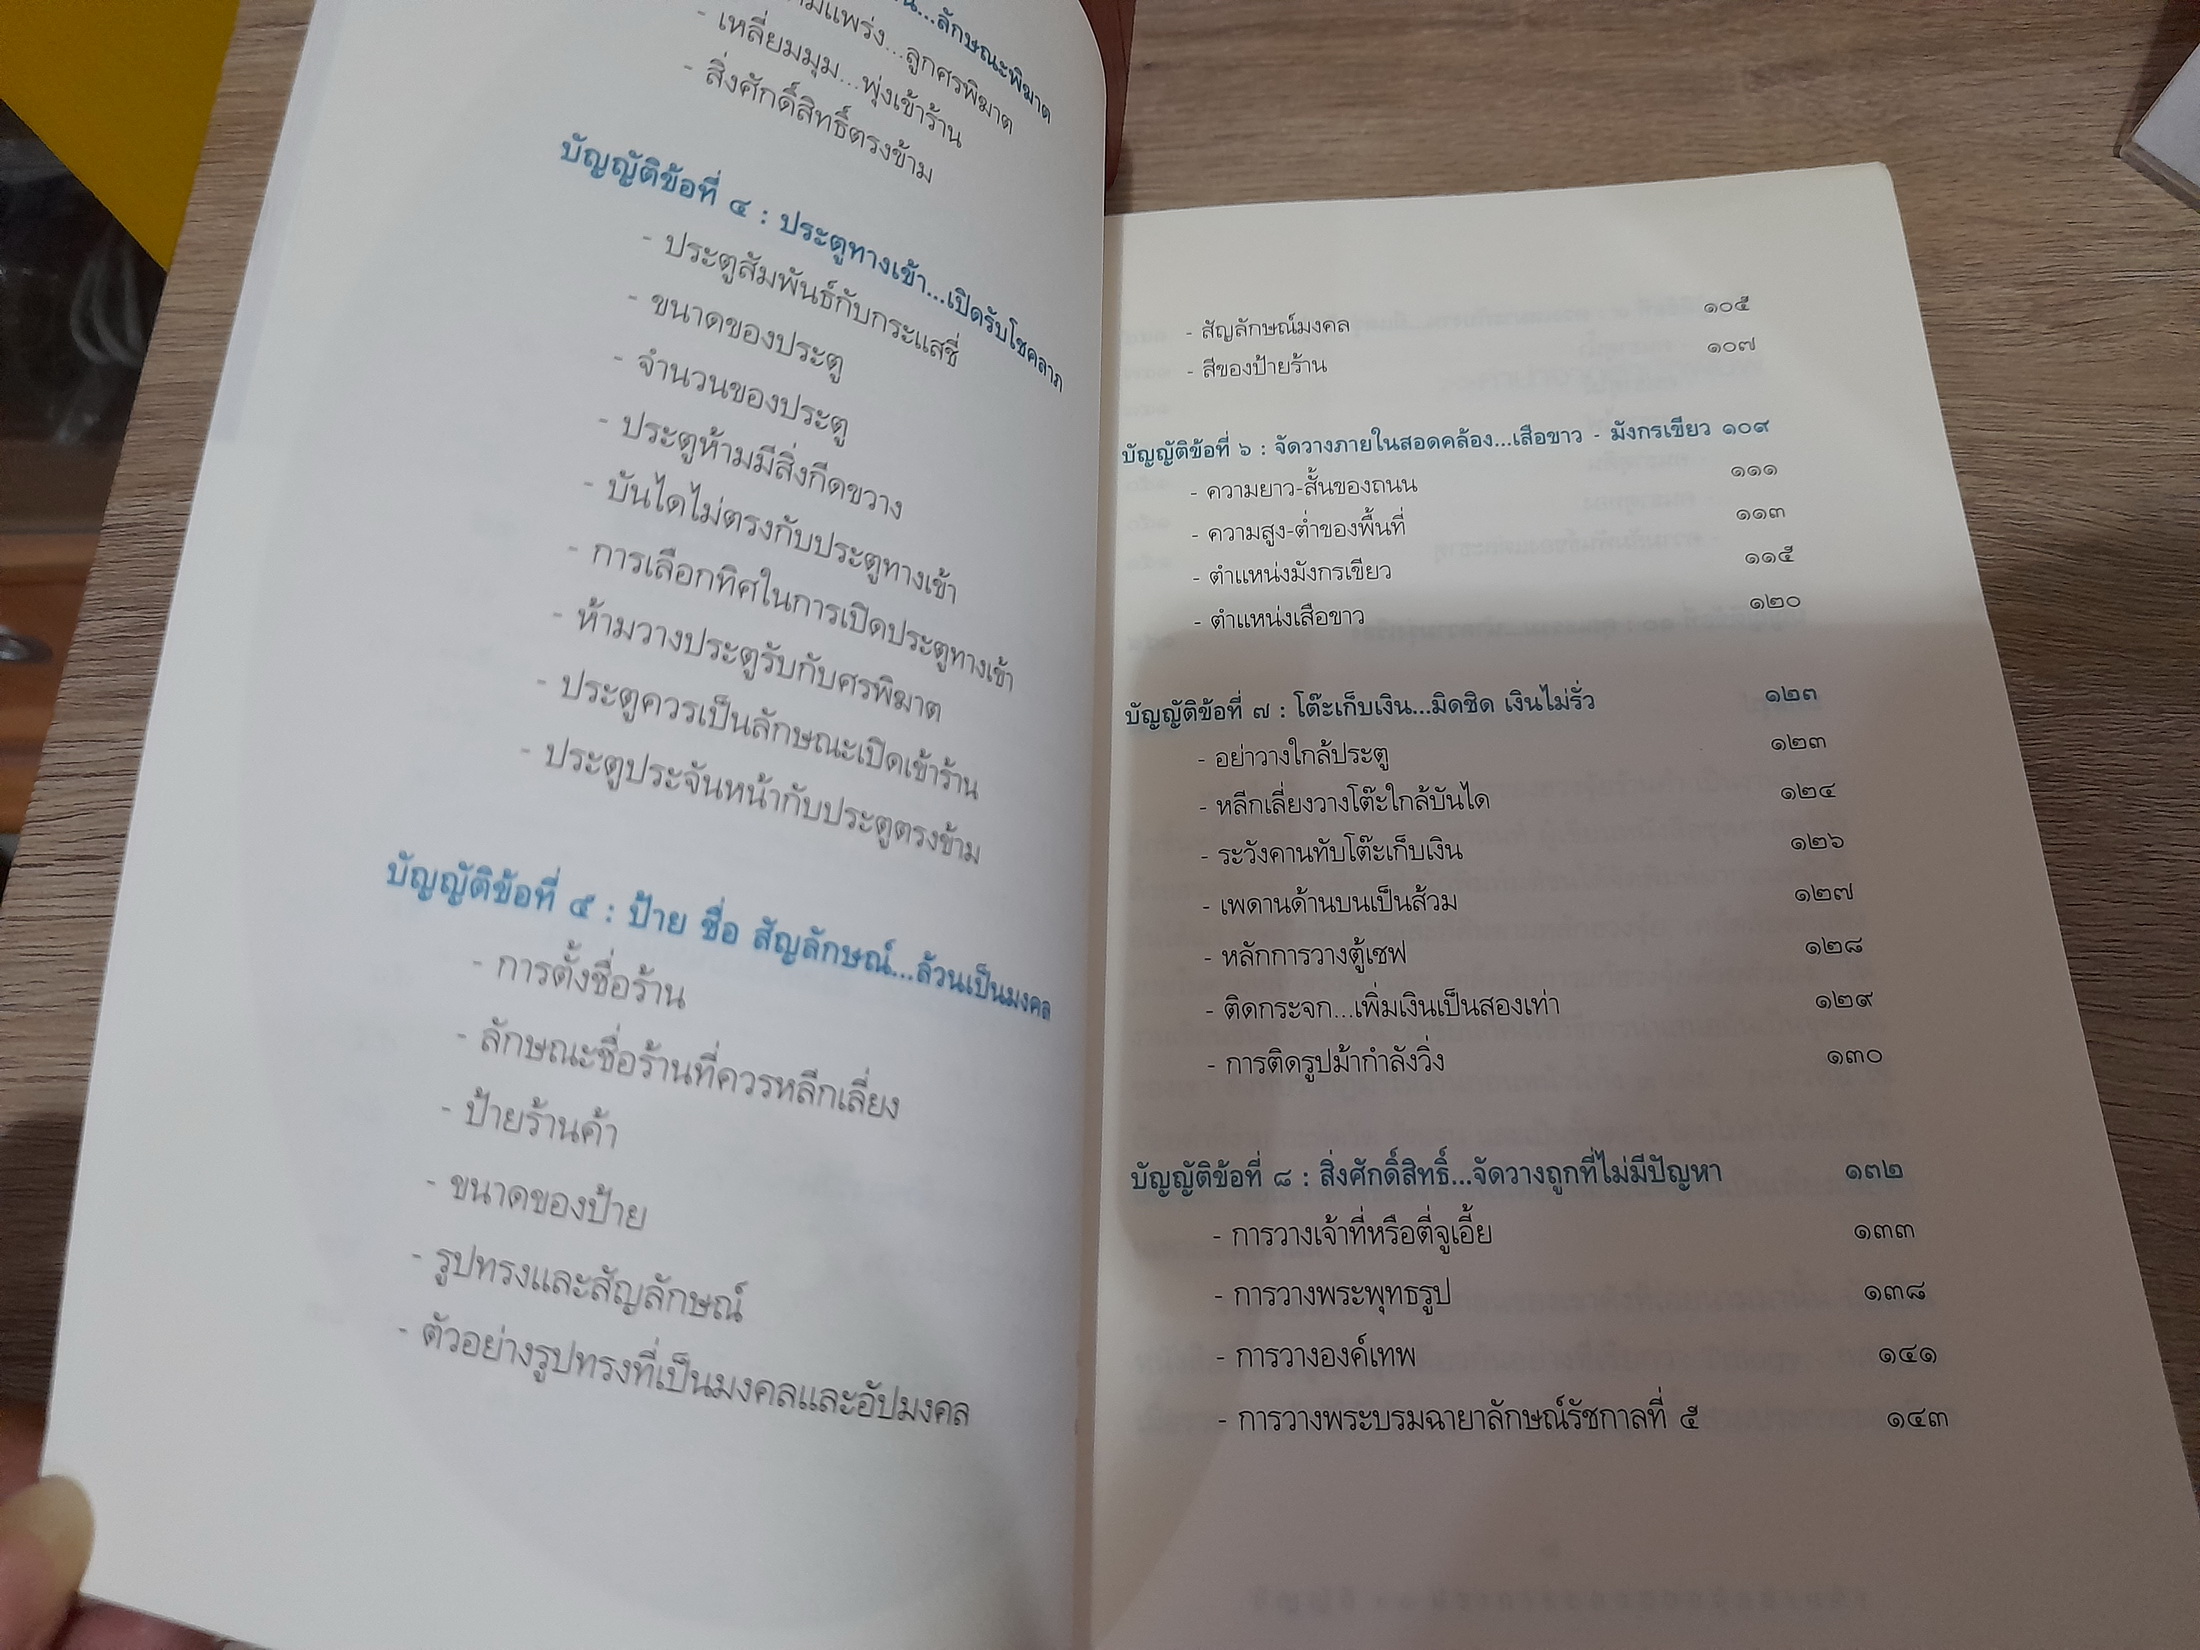 ...ลักษณะพิฆาต
...ลูกศรพิฆาต
- เหลี่ยมมุม...พุ่งเข้าร้าน
- สิ่งศักดิ์สิทธิ์ตรงข้าม
บัญญัติข้อที่ ๔ : ประตูทางเข้า...เปิดรับโชคลาภ
- ประตูสัมพันธ์กับกระแสชี่
- ขนาดของประตู
- จำนวนของประตู
- ประตูห้ามมีสิ่งกีดขวาง
- บันไดไม่ตรงกับประตูทางเข้า
- การเลือกทิศในการเปิดประตูทางเข้า
- ห้ามวางประตูรับกับศรพิฆาต
- ประตูควรเป็นลักษณะเปิดเข้าร้าน
- ประตูประจันหน้ากับประตูตรงข้าม
บัญญัติข้อที่ ๕ : ป้าย ชื่อ สัญลักษณ์...ล้วนเป็นมงคล
- การตั้งชื่อร้าน
- ลักษณะชื่อร้านที่ควรหลีกเลี่ยง
- ป้ายร้านค้า
- ขนาดของป้าย
- รูปทรงและสัญลักษณ์
- ตัวอย่างรูปทรงที่เป็นมงคลและอัปมงคล
- สัญลักษณ์มงคล ๑๐๕
- สีของป้ายร้าน ๑๐๗
บัญญัติข้อที่ ๖ : จัดวางภายในสอดคล้อง...เสือขาว - มังกรเขียว ๑๐๙
- ความยาว-สั้นของถนน ๑๑๑
- ความสูง-ต่ำของพื้นที่ ๑๑๓
- ตำแหน่งมังกรเขียว ๑๑๕
- ตำแหน่งเสือขาว ๑๒๐
บัญญัติข้อที่ ๗ : โต๊ะเก็บเงิน...มิดชิด เงินไม่รั่ว ๑๒๓
- อย่าวางใกล้ประตู ๑๒๓
- หลีกเลี่ยงวางโต๊ะใกล้บันได ๑๒๔
- ระวังคานทับโต๊ะเก็บเงิน ๑๒๖
- เพดานด้านบนเป็นส้วม ๑๒๗
- หลักการวางตู้เซฟ ๑๒๘
- ติดกระจก...เพิ่มเงินเป็นสองเท่า ๑๒๙
- การติดรูปม้ากำลังวิ่ง ๑๓๐
บัญญัติข้อที่ ๘ : สิ่งศักดิ์สิทธิ์...จัดวางถูกที่ไม่มีปัญหา ๑๓๒
- การวางเจ้าที่หรือตี่จูเอี้ย ๑๓๓
- การวางพระพุทธรูป ๑๓๘
- การวางองค์เทพ ๑๔๑
- การวางพระบรมฉายาลักษณ์รัชกาลที่ ๕ ๑๔๓